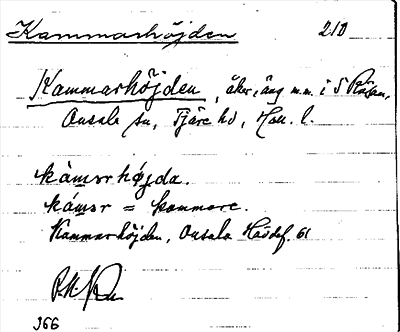 Kammarhöjden 210
Kammarhöjden, åker, äng m.m. i S
Onsala sn, Fjäre hd, Hall. l.
kàmərhøjda.
kámər = kammare.
Kammarhöjden, Onsala Hävdef. 61
366